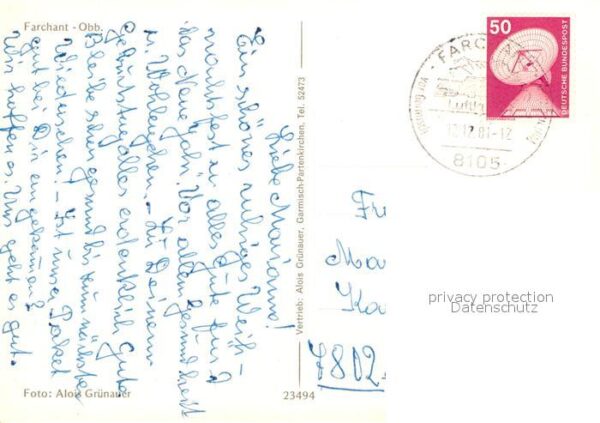 Farchant - Obb.
Liebe Marianne!
Ein schönes ruhiges Weih-
nachtsfest u. alles Gute für
das Neue Jahr. Vor allem Gesundheit
u. Wohlergehen. - Zu Deinem
Geburtstag alles erdenklich Gute
Bleibe schön gesund bis zum nächsten
Wiedersehen! - Ist unser Paket
gut bei Dir eingekommen?
Wir hoffen es. Uns geht es gut.
Vertrieb: Alois Grünauer, Garmisch-Partenkirchen, Tel. 52473
Foto: Alois Grünauer
23494
50
DEUTSCHE BUNDESPOST
FARC
Luft
12.81-12
8105
Ma
Ka
7802
privacy protection
Datenschutz